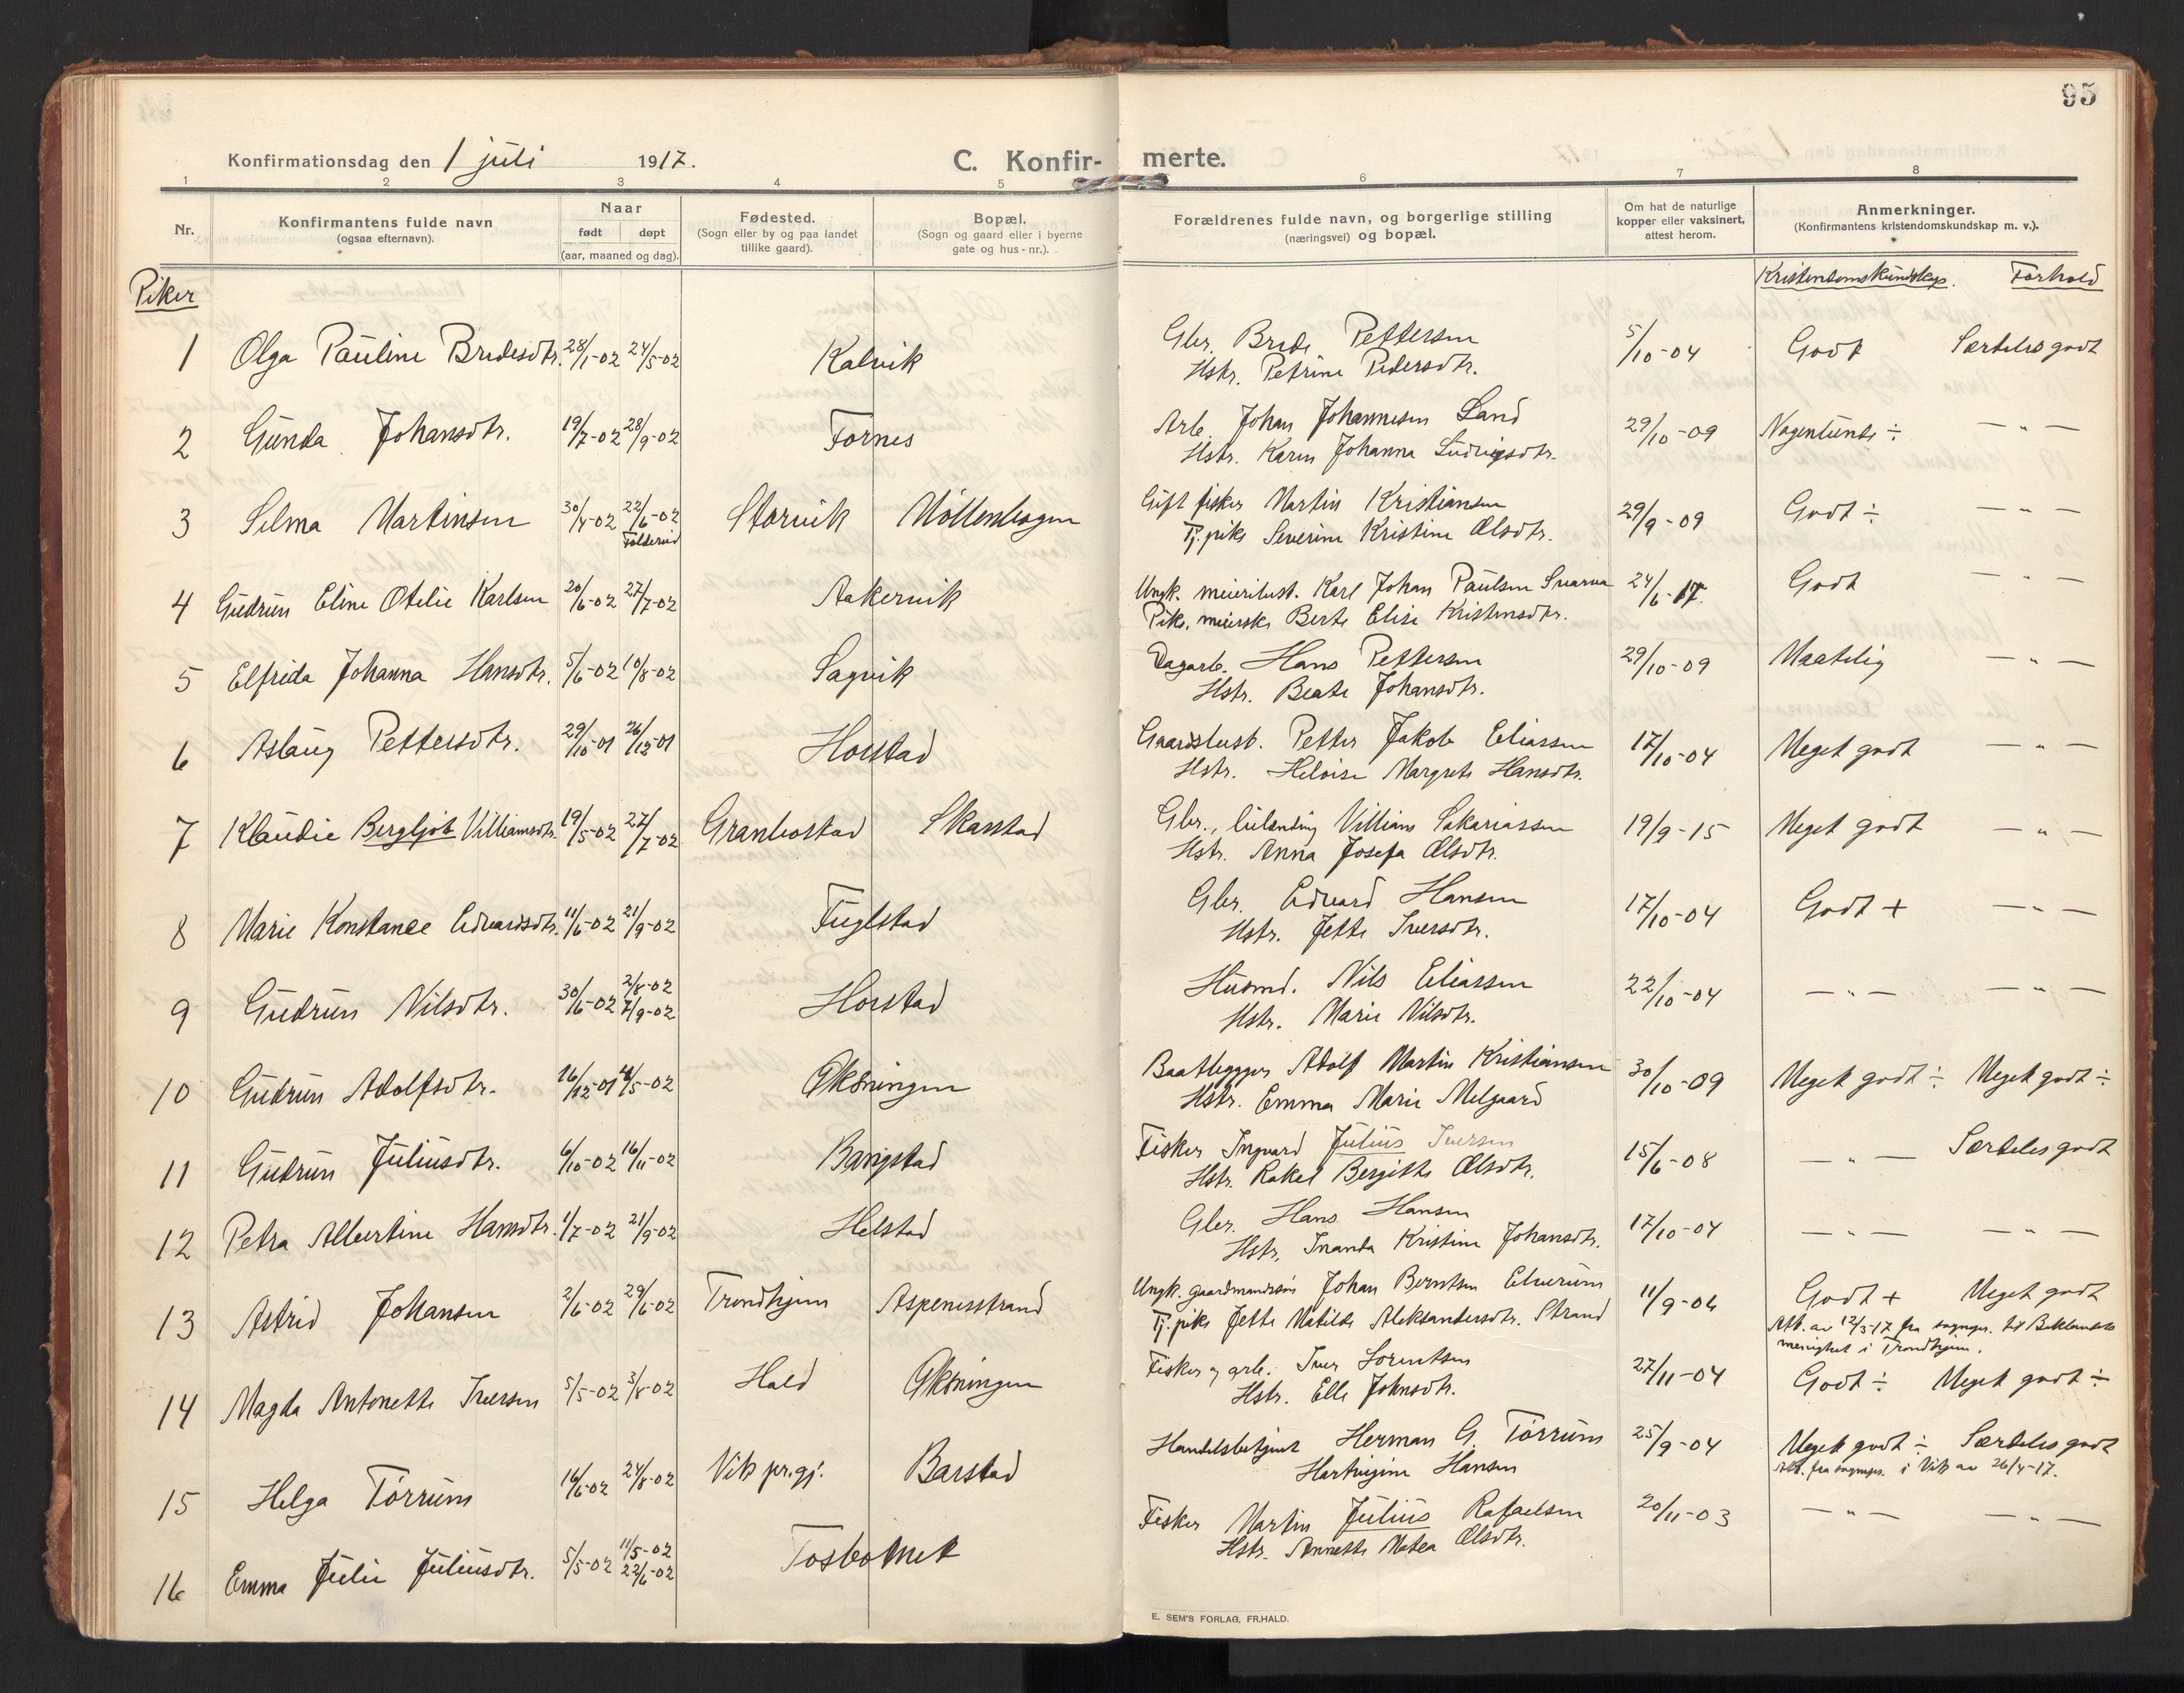 95
Konfirmationsdag den 1 juli 1917.
C. Konfir- merte.
1 2 3 4 5 6 7 8
Nr.
Konfirmantens fulde navn
(ogsaa efternavn).
Naar
født døpt
(aar, maaned og dag).
Fødested.
(Sogn eller by og paa landet
tillike gaard).
Bopæl.
(Sogn og gaard eller i byerne
gate og hus-nr.).
Forældrenes fulde navn, og borgerlige stilling
(næringsvei) og bopæl.
Om hat de naturlige
kopper eller vaksinert,
attest herom.
Anmerkninger.
(Konfirmantens kristendomskundskap m. v.).
Piker
Kristendomskundskap. Forhold
1 Olga Pauline Bredesdtr. 28/1-02 24/5-02 Kalvik Gbr. Brede Pettersen 5/10-04 Godt Særdeles godt
Hstr. Petrine Pedersdtr.
2 Gunda Johansdtr. 19/7-02 28/9-02 Fornes Arb. Johan Johannesen Sand 29/10-09 Nogenlunde ÷ — " —
Hstr. Karen Johanna Ludvigsdtr.
3 Selma Martinsen 30/4-02 22/6-02 Storvik Möllenhagen Gift fisker Martin Kristiansen 29/9-09 Godt ÷ — " —
Foldereid
Tj. pike Severine Kristine Olsdtr.
4 Gudrun Eline Otelie Karlsen 20/6-02 27/7-02 Aakervik Ungk. meieribest. Karl Johan Paulsen Svarva 24/6-17. Godt — " —
Pike, meierske Berte Elise Kristensdtr.
5 Elfrida Johanna Hansdtr. 5/6-02 10/8-02 Sagvik Dagarb. Hans Pettersen 29/10-09 Maatelig — " —
Hstr. Beate Johansdtr.
6 Aslaug Pettersdtr. 29/10-01 26/12-01 Horstad Gaardsbest. Petter Jakob Eliassen 17/10-04 Meget godt — " —
Hstr. Heloise Margrete Hansdtr.
7 Klaudie Bergljot Villiamsdtr. 19/5-02 27/7-02 Granbostad Skarstad Gbr., Villiam Sakariassen 19/9-15 Meget godt — " —
Hstr. Anna Josefa Olsdtr.
8 Marie Konstance Edvardsdtr. 11/6-02 21/9-02 Fuglstad Gbr. Edvard Hansen 17/10-04 Godt + — " —
Hstr. Jette Iversdtr.
9 Gudrun Nilsdtr. 30/6-02 2/8-02 7/9-02 Horstad Husmd. Nils Eliassen 22/10-04 — " — — " —
Hstr. Marie Nilsdtr.
10 Gudrun Adolfsdtr. 16/12-01 4/5-02 Øksningen Baatbygger Adolf Martin Kristiansen 30/10-09 Meget godt ÷ Meget godt ÷
Hstr. Emma Marie Melgaard
11 Gudrun Juliusdtr. 6/10-02 16/11-02 Bangstad Fisker Ingvard Julius Iversen 15/6-08 — " — Særdeles godt
Hstr. Rakel Bergitte Olsdtr.
12 Petra Albertine Hansdtr. 1/7-02 21/9-02 Helstad Gbr. Hans Hansen 17/10-04 — " — — " —
Hstr. Inanda Kristine Johansdtr.
13 Astrid Johansen 2/6-02 29/6-02 Trondhjem Aspenesstrand Ungk. gaardmandssön Johan Berntsen Elverum 11/9-06 Godt + Meget godt
Tj. pike Jette Matilde Aleksandersdtr. Strand
Att. av 12/3-17 fra sognepr. til Baklandets
menighet i Trondhjem.
14 Magda Antonette Iversen 5/5-02 3/8-02 Hald Øksningen Fisker og arb. Iver Lorentsen 27/11-04 Godt ÷ Meget godt ÷
Hstr. Elle Johnsdtr.
15 Helga Törrum 16/6-02 24/8-02 Vik pr.gj. Barstad Handelsbetjent Herman G. Törrum 25/9-04 Meget godt ÷ Særdeles godt
Hartvigine Hansen
Att. fra sognepr. i Vik av 26/4-17.
16 Emma Julie Juliusdtr. 5/5-02 11/5-02 22/6-02 Tosbotnet Fisker Martin Julius Rafaelsen 20/11-03 — " — — " —
Hstr. Annette Matea Olsdtr.
E. SEM'S FORLAG, FR.HALD.